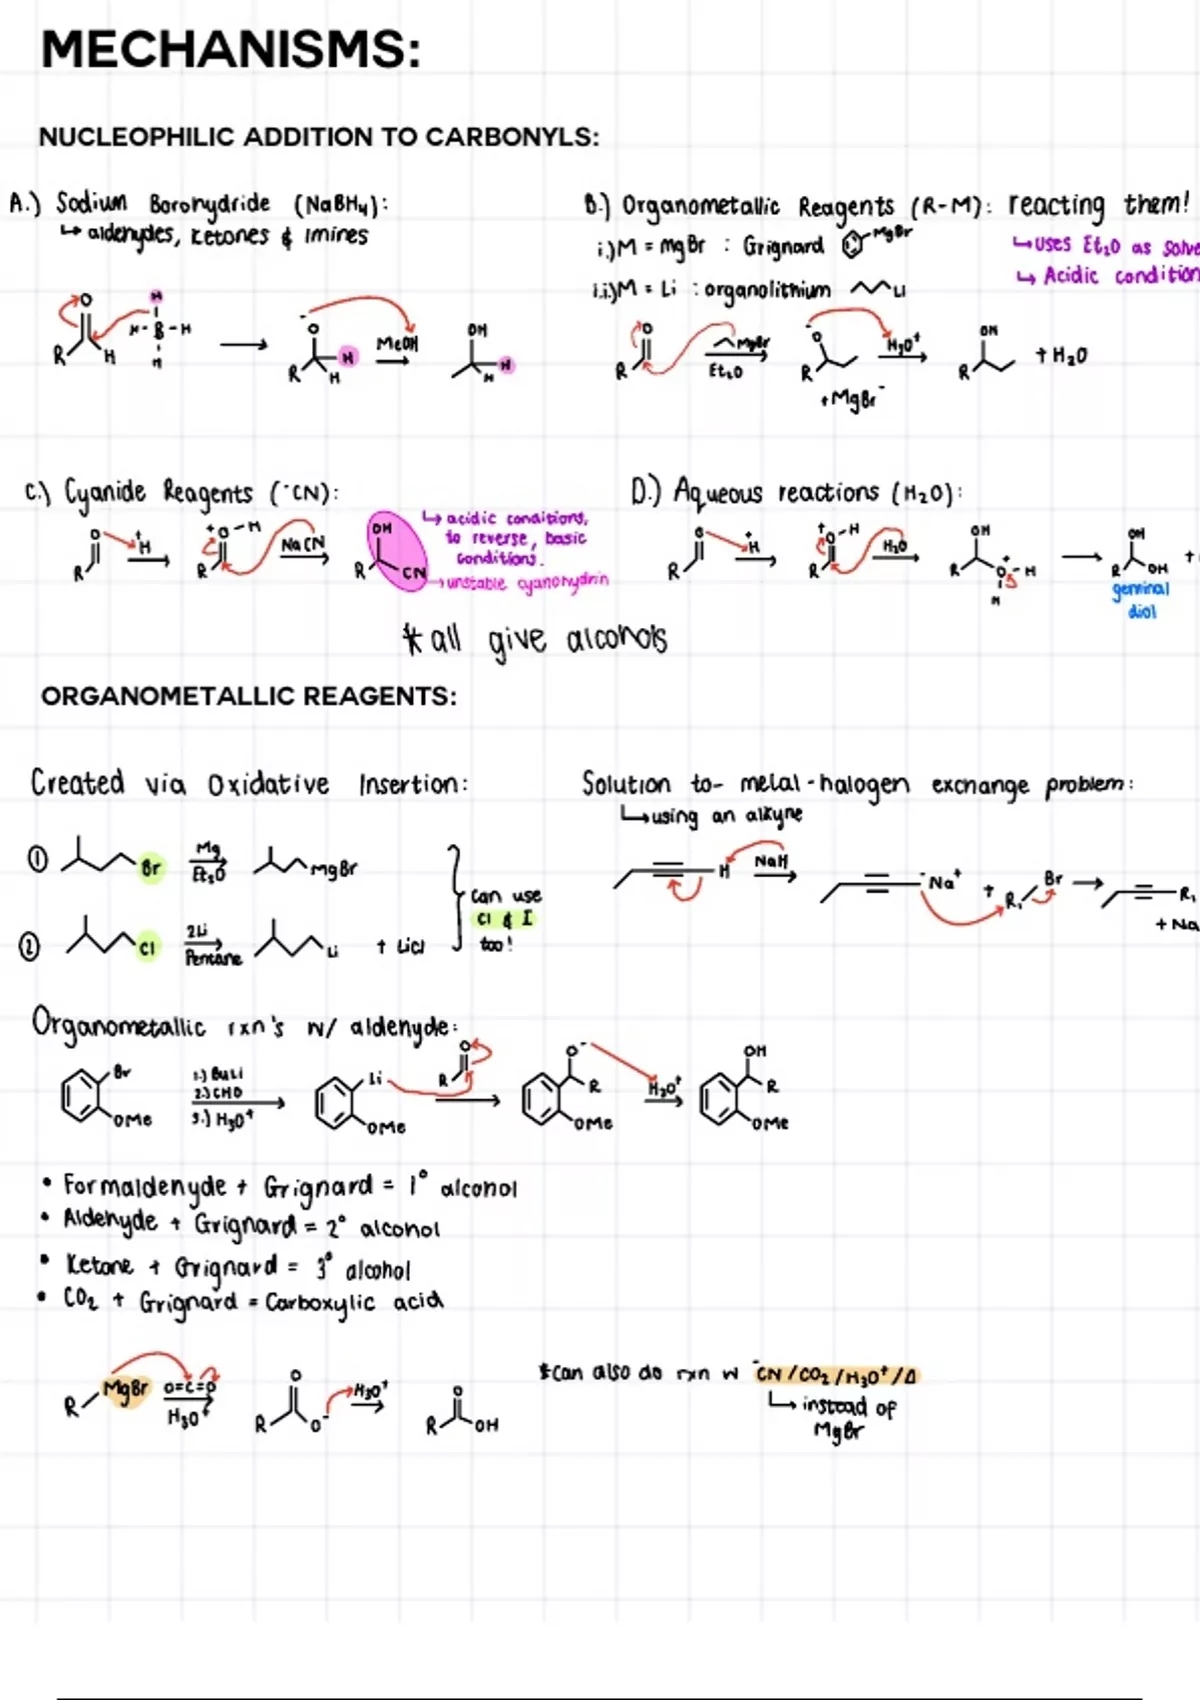 MECHANISMS:
NUCLEOPHILIC ADDITION TO CARBONYLS:
A.) Sodium Borohydride (NaBH4):
↳ aldehydes, ketones & imines
O H
R H H-B-H
H
-O
R H H
MeOH
OH
H H
B.) Organometallic Reagents (R-M): reacting them!
i.) M = mgBr : Grignard MgBr
i.i.) M = Li : organolithium Li
↳ uses Et2O as solve
↳ Acidic condition
O
R
MgBr
Et2O
-O
R
+MgBr-
H3O+
OH
R
+ H2O
C.) Cyanide Reagents (-CN):
O
R
+H
+O-H
R
NaCN
OH
R CN
↳ acidic conditions,
to reverse, basic
conditions.
→ unstable cyanohydrin
D.) Aqueous reactions (H2O):
O
R
+H
+O-H
R
H2O
OH
R O+-H
H
OH
R OH
+
geminal
diol
* all give alcohols
ORGANOMETALLIC REAGENTS:
Created via Oxidative Insertion:
① Br
Mg
Et2O
MgBr
② Cl
2Li
Pentane
Li + LiCl
can use
Cl & I
too!
Solution to- metal-halogen exchange problem:
↳ using an alkyne
H NaH
-Na+ + R1 Br
R1
+ Na
Organometallic rxn's w/ aldehyde:
Br
OMe
1.) BuLi
2.) CHO
3.) H3O+
Li
OMe
O
R
O-
R
OMe
H3O+
OH
R
OMe
• Formaldehyde + Grignard = 1° alcohol
• Aldehyde + Grignard = 2° alcohol
• Ketone + Grignard = 3° alcohol
• CO2 + Grignard = Carboxylic acid
R MgBr
O=C=O
H3O+
O
R O-
H3O+
O
R OH
*Can also do rxn w -CN/CO2/H3O+/Δ
↳ instead of
MgBr